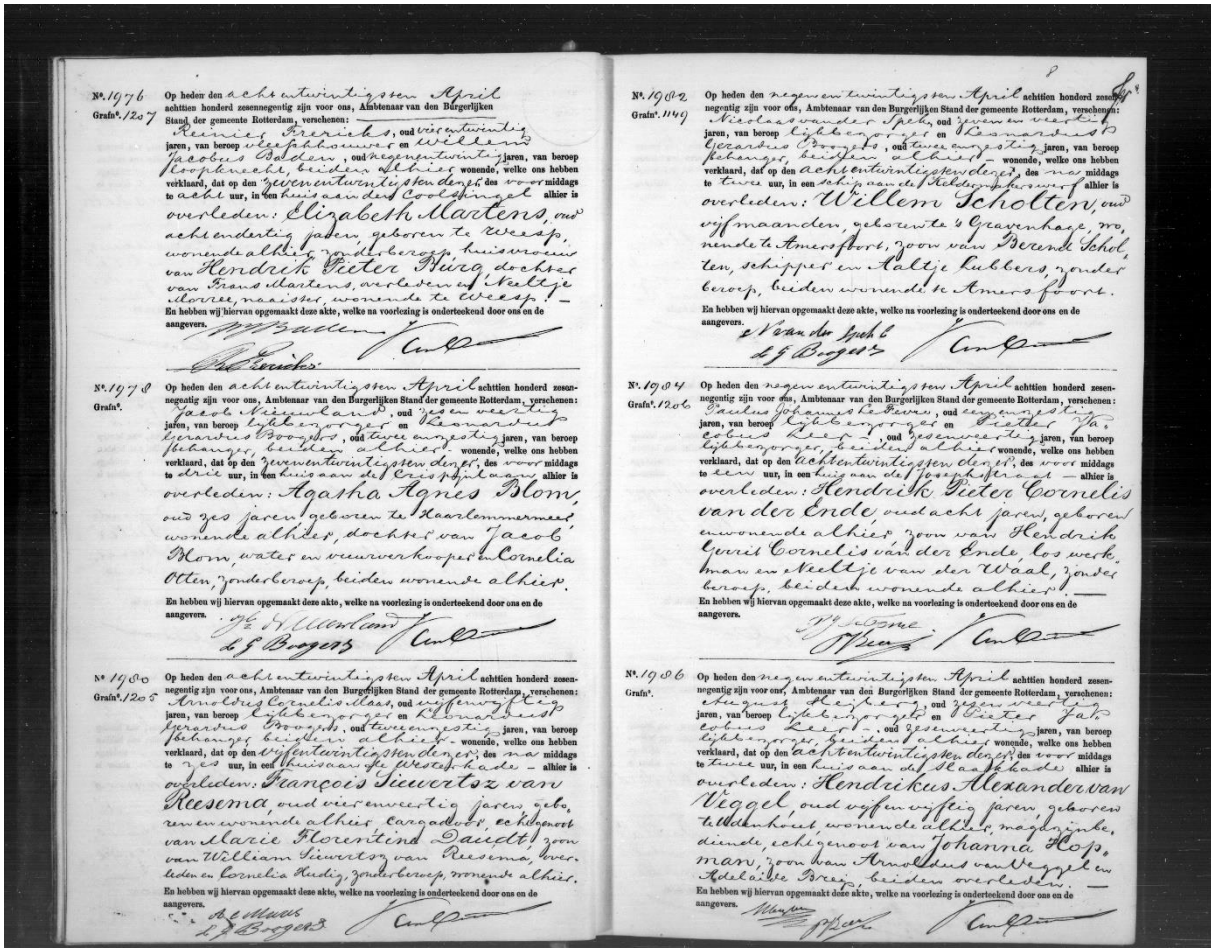 Nº. 1976
Grafnº. 1207
Op heden den achtentwintigsten April
achttien honderd zesennegentig zijn voor ons, Ambtenaar van den Burgerlijken
Stand der gemeente Rotterdam, verschenen:
Reinier Frerichs, oud vierentwintig
jaren, van beroep vleeschhouwer en Willem
Jacobus Baden, oud negenentwintig jaren, van beroep
loopknecht, beiden alhier wonende, welke ons hebben
verklaard, dat op den zevenentwintigsten dezer, des voormiddags
te acht uur, in een huis aan den Coolsingel alhier is
overleden: Elizabeth Martens, oud
achtendertig jaren, geboren te Weesp,
wonende alhier, zonder beroep, huisvrouw
van Hendrik Pieter Burg, dochter
van Frans Martens, overleden en Neeltje
naaister, wonende te Weesp. —
En hebben wij hiervan opgemaakt deze akte, welke na voorlezing is onderteekend door ons en de
aangevers.
Baden
Frerichs
Nº. 1978
Grafnº.
Op heden den achtentwintigsten April achttien honderd zesen-
negentig zijn voor ons, Ambtenaar van den Burgerlijken Stand der gemeente Rotterdam, verschenen:
Jacob Nieuwland, oud zesenveertig
jaren, van beroep lijkbezorger en Leonardus
Gerardus Boogers, oud tweeenzestig jaren, van beroep
behanger, beiden alhier — wonende, welke ons hebben
verklaard, dat op den zevenentwintigsten dezer, des voormiddags
te drie uur, in een huis aan de Crispijnlaan alhier is
overleden: Agatha Agnes Blom,
oud zes jaren, geboren te Haarlemmermeer,
wonende alhier, dochter van Jacob
Blom, water en vuurverkooper en Cornelia
Otten, zonder beroep, beiden wonende alhier.
En hebben wij hiervan opgemaakt deze akte, welke na voorlezing is onderteekend door ons en de
aangevers.
Nieuwland
L G Boogers
Nº. 1980
Grafnº. 1205
Op heden den achtentwintigsten April achttien honderd zesen-
negentig zijn voor ons, Ambtenaar van den Burgerlijken Stand der gemeente Rotterdam, verschenen:
Arnoldus Cornelis Maas, oud vijfenvijftig
jaren, van beroep lijkbezorger en Leonardus
Gerardus Boogers, oud tweeenzestig jaren, van beroep
behanger, beiden alhier — wonende, welke ons hebben
verklaard, dat op den vijfentwintigsten dezer, des namiddags
te zes uur, in een huis aan de Westerkade — alhier is
overleden: François Sieuwertsz van
Reesema, oud vierenveertig jaren, gebo-
ren en wonende alhier, cargadoor, echtgenoot
van Marie Florentine Daudt, zoon
van William Sieuwertsz van Reesema, over-
leden en Cornelia Hudig, zonder beroep, wonende alhier.
En hebben wij hiervan opgemaakt deze akte, welke na voorlezing is onderteekend door ons en de
aangevers.
A C Maas
L G Boogers
8
Nº. 1982
Grafnº. 1149
Op heden den negenentwintigsten April achttien honderd zesen-
negentig zijn voor ons, Ambtenaar van den Burgerlijken Stand der gemeente Rotterdam, verschenen:
Nicolaas van der Spek, oud zevenenveertig
jaren, van beroep lijkbezorger en Leonardus
Gerardus Boogers, oud tweeenzestig jaren, van beroep
behanger, beiden alhier — wonende, welke ons hebben
verklaard, dat op den achtentwintigsten dezer, des namiddags
te twee uur, in een schip aan de Keldermakerswerf alhier is
overleden: Willem Scholten, oud
vijf maanden, geboren te 's Gravenhage, wo-
nende te Amersfoort, zoon van Berend Schol-
ten, schipper en Aaltje Lubbers, zonder
beroep, beiden wonende te Amersfoort.
En hebben wij hiervan opgemaakt deze akte, welke na voorlezing is onderteekend door ons en de
aangevers.
N van der Spek
L G Boogers
Nº. 1984
Grafnº. 1206
Op heden den negenentwintigsten April achttien honderd zesen-
negentig zijn voor ons, Ambtenaar van den Burgerlijken Stand der gemeente Rotterdam, verschenen:
Paulus Johannes Le Fèvre, oud eenenzestig
jaren, van beroep lijkbezorger en Pieter Ja-
cobus Leer —, oud zesenveertig jaren, van beroep
lijkbezorger, beiden alhier wonende, welke ons hebben
verklaard, dat op den achtentwintigsten dezer, des voormiddags
te een uur, in een huis aan de Josephstraat — alhier is
overleden: Hendrik Pieter Cornelis
van der Ende, oud acht jaren, geboren
en wonende alhier, zoon van Hendrik
Gerrit Cornelis van der Ende, los werk-
man en Neeltje van der Waal, zonder
beroep, beiden wonende alhier. —
En hebben wij hiervan opgemaakt deze akte, welke na voorlezing is onderteekend door ons en de
aangevers.
Nº. 1986
Grafnº.
Op heden den negenentwintigsten April achttien honderd zesen-
negentig zijn voor ons, Ambtenaar van den Burgerlijken Stand der gemeente Rotterdam, verschenen:
August Heijberg, oud zesenveertig
jaren, van beroep lijkbezorger en Pieter Ja-
cobus Leer —, oud zesenveertig jaren, van beroep
lijkbezorger, beiden alhier wonende, welke ons hebben
verklaard, dat op den achtentwintigsten dezer, des voormiddags
te twee uur, in een huis aan de Slaakkade alhier is
overleden: Hendrikus Alexander van
Veggel, oud vijfenvijftig jaren, geboren
te Udenhout, wonende alhier, magazijnbe-
diende, echtgenoot van Johanna Hop-
man, zoon van Arnoldus van Veggel en
Adelaide Breij, beiden overleden. —
En hebben wij hiervan opgemaakt deze akte, welke na voorlezing is onderteekend door ons en de
aangevers.